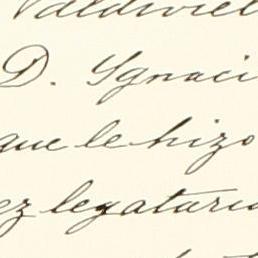 Valdiviel
D. Ygnaci
que le hizo
ez legataria